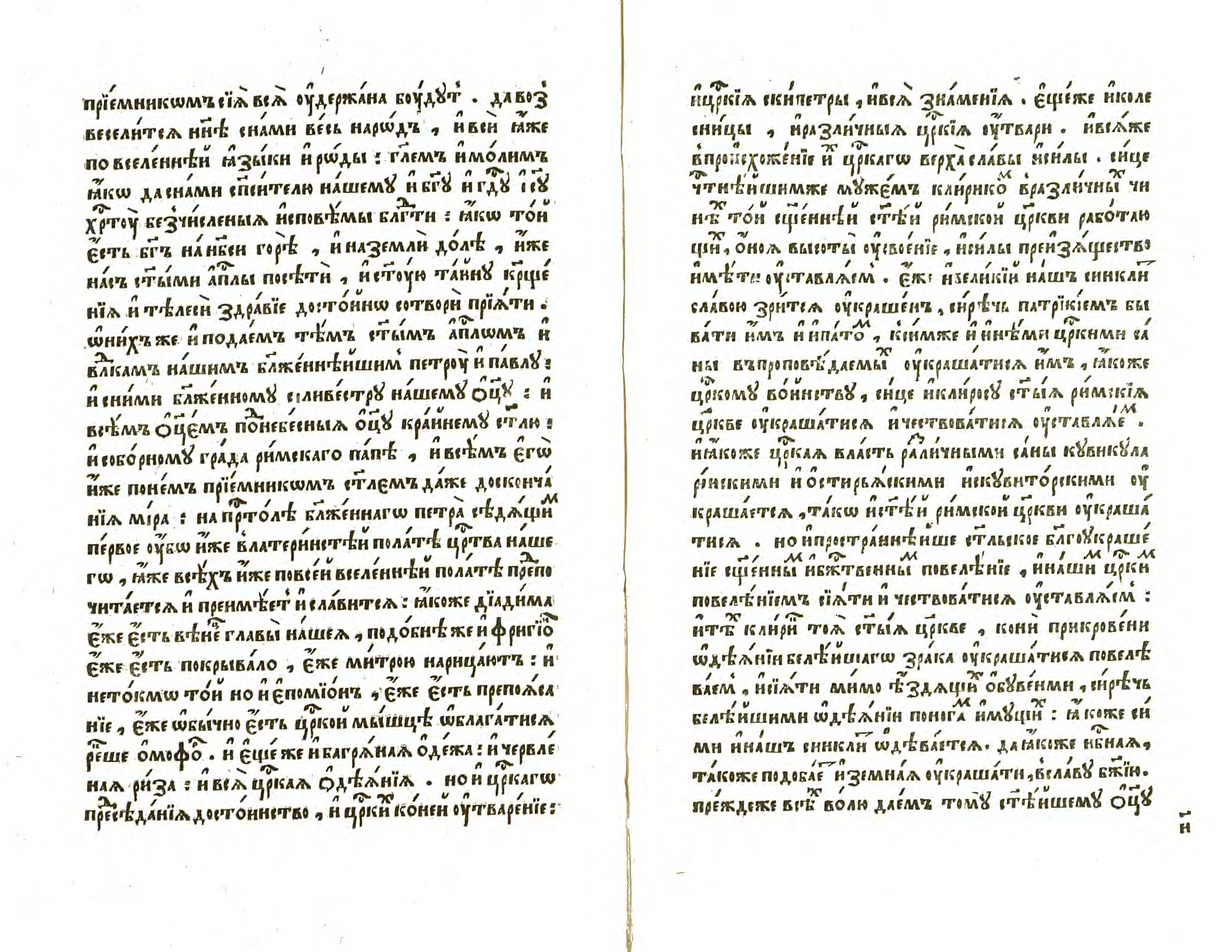 прїе́мникѡмъ сїѧ̀ всѧ̀ ᲂу҆держа́на бᲂу́дутъ . да воз̾
весели́тсѧ нн҃ѣ сна́ми ве́сь наро́дъ , и҆ всѝ ꙗ҆́же
по вселе́ннѣй ꙗ҆зы́ки и҆ ро́ды : гл҃емъ и҆ мо́лимъ
ꙗ҆́кѡ да сна́ми сп҃си́телю на́шему и҆ бг҃у и҆ гд҇у і҆с҃у
хр҇тᲂу̀ безчи́сленыѧ и҆сповѣ́мы бл҃гⷣти : ꙗ҆́кѡ то́й
є҆́сть бг҃ъ на нб҃сѝ горѣ̀ , и҆ на землѝ до́лѣ , и҆́же
на́съ ст҃ы́ми а҆пⷭ҇лы посѣтѝ , и҆ ст҃ᲂу́ю та́йну крⷭ҇ще́
нїѧ и҆ тѣ́лесѝ здра́вїе досто́йнѡ сотворѝ прїѧ́ти .
ѡ҆ни́хъ же и҆ подае́мъ тѣ́мъ ст҃ы́мъ а҆пⷭ҇лѡмъ и҆
влⷣкамъ на́шимъ бл҃же́ннѣйшимъ петрᲂу̀ и҆ па́влу :
и҆ сни́ми бл҃же́нному силиве́стру на́шему ѻ҆ц҃у : и҆
всѣ́мъ ѻ҆ц҃е́мъ поⷣнебе́сныѧ ѻ҆ц҃у кра́йнему ст҃лю :
и҆ собо́рному гра́да ри́мскаго па́пѣ , и҆ всѣ́мъ є҆гѡ̀
и҆́же поне́мъ прїе́мникѡмъ ст҃лемъ да́же доскон́ча
нїѧ ми́ра : на прⷭ҇то́лѣ бл҃же́ннагѡ петра̀ сѣдѧ́щиⷨ
пе́рвое ᲂу҆́бѡ и҆́же влатери́нстѣй пола́тѣ црⷭ҇тва на́ше
гѡ , ꙗ҆́же всѣ́хъ и҆́же повсе́й вселе́ннѣй пола́тѣ преⷣпо
чита́етсѧ и҆ преимѣ́етъ и҆ сла́витсѧ : ꙗ҆́коже дїади́ма
є҆́же є҆́сть вѣне́ц главы̀ на́шеѧ , подо́бнѣ же и҆ фригїѡⷩ
є҆́же є҆́сть покрыва́ло , є҆́же ми́трою нарица́ютъ : и҆
нето́кмѡ то́й но и҆ є҆помїѡ́нъ , є҆́же є҆́сть препоѧ́са
нїе , є҆́же ѡ҆бы́чно є҆́сть црⷭ҇ко́й мы́шцѣ ѡ҆блага́тисѧ
ре́кше о҆мофо́ръ . и҆ є҆ще́же и҆ багрѧ́наѧ о҆де́жа : и҆ червле́
наѧ ри́за : и҆ всѧ̀ црⷭ҇каѧ ѻ҆дѣѧ́нїѧ . но и҆ црⷭ҇кагѡ
пресѣда́нїѧ досто́инство , и҆ црⷭ҇киⷯ ко́ней ᲂу҆тваре́нїе :
и҆ црⷭ҇кїѧ ски́петры , и҆ всѧ̀ зна́менїѧ . є҆ще́же и҆ коле
сни́цы , и҆ разли́чныѧ црⷭ҇кїѧ ᲂу҆́твари . и҆ всѧ́же
впроисхожде́нїе и҆ црⷭ҇кагѡ верха̀ сла́вы и҆ си́лы . си́це
чⷭ҇тнѣ́йшимже муже́мъ кли́рикоⷨ вразли́чныⷯ чи
нѣ́ⷯ то́й сщ҃е́ннѣй ст҃ѣ́й ри́мской цр҃кви рабо́таю
щиⷨ , о҆́ноѧ высоты̀ ᲂу҆свое́нїе , и҆ си́лы преизѧ́щество
и҆мѣ́ти ᲂу҆ставлѧ́ем . є҆́же и҆ вели́кїй на́шъ синкли́т
сла́вою зри́тсѧ ᲂу҆краше́нъ , си́рѣчь патри́кїемъ бы
ва́ти и҆̀мъ и҆ и҆па́тоⷨ , ксимже и҆ и҆нѣ́ми црⷭ҇кими са́
ны въпроповѣ́даемыⷯ ᲂу҆краша́тисѧ и҆̀мъ , ꙗ҆́коже
црⷭ҇кому во́инству , си́це и҆ кли́росу ст҃ы́ѧ ри́мскїѧ
цр҃кве ᲂу҆краша́тисѧ и҆ че́ствоватисѧ ᲂу҆ставлѧ́еⷨ .
и҆ ꙗ҆́коже црⷭ҇каѧ вла́сть разли́чными са́ны кувикула
рі́искими и҆ остирьѧ́скими и҆скувито́рскими ᲂу҆
краша́етсѧ , та́кѡ и҆ ст҃ѣ́й ри́мской цр҃кви ᲂу҆краша́
тисѧ . но и҆ простра́ннѣйше ст҃льское бл҃гоукраше́
нїе сщ҃е́нныⷨ и҆ бж҃е́твенныⷨ повелѣ́нїе , и҆ на́шиⷨ црⷭ҇киⷨ
повелѣ́нїемъ сїѧ́ти и҆ че́ствова́тисѧ ᲂу҆ставлѧ́ем :
и҆ тѣ́ⷯ кли́риⷦ тоѧ̀ ст҃ы́ѧ цр҃кве , ко́ни прикрове́ни
ѡ҆дѣѧ́нїи белѣ́йшагѡ зра́ка ᲂу҆краша́тисѧ повелѣ
ва́ем , и҆ сїѧ́ти ми́мо ѣ҆здѧ́щиⷯ о҆бувенми , си́рѣчь
белѣ́йшими ѡ҆дѣѧ́нїи понога́ⷨ и҆му́щиⷯ : ꙗ҆́коже си́
ми и҆ на́шъ синкли́т ѡ҆дѣва́етсѧ . да ꙗ҆́коже нб҃наѧ ,
та́коже подоба́ет и҆ земна́ѧ ᲂу҆краша́ти , всла́ву бж҃їю .
пре́ждеже всѣ́ⷯ во́лю дае́мъ тому̀ ст҃ѣ́йшему ѻ҆ц҃у
и҃